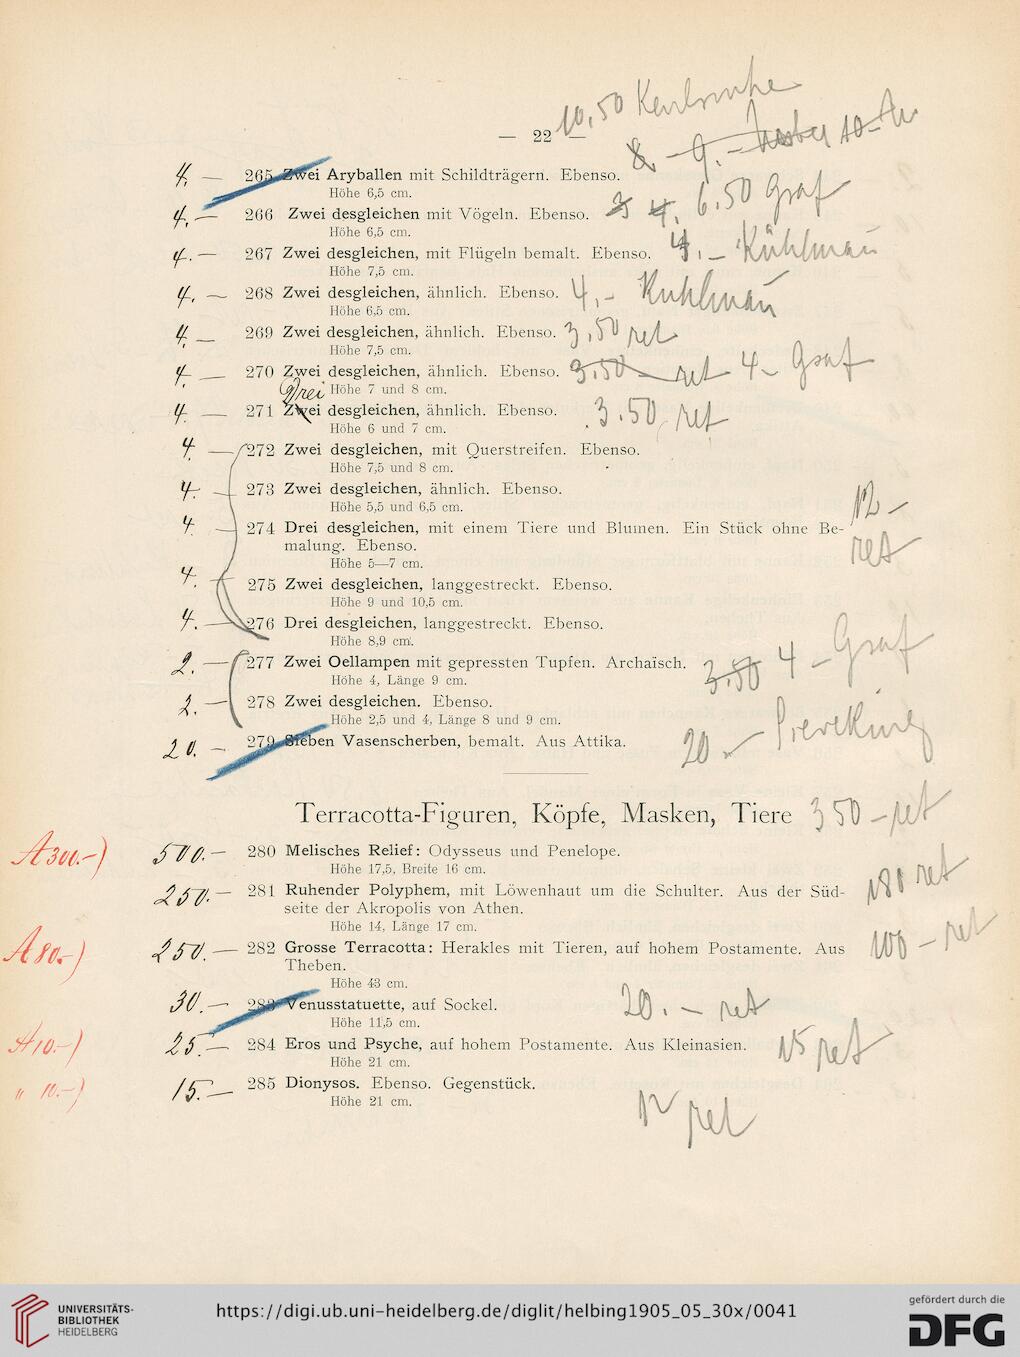 10,50 Karlsruhe
— 22 —
4. — 265 Zwei Aryballen mit Schildträgern. Ebenso.
Höhe 6,5 cm.
4. — 266 Zwei desgleichen mit Vögeln. Ebenso. 4. 6.50 Graf
Höhe 6,5 cm.
4. — 267 Zwei desgleichen, mit Flügeln bemalt. Ebenso. 4. –
Höhe 7,5 cm.
4. — 268 Zwei desgleichen, ähnlich. Ebenso. 4. –
Höhe 6,5 cm.
4. — 269 Zwei desgleichen, ähnlich. Ebenso. 3.50 ret
Höhe 7,5 cm.
4. — 270 Zwei desgleichen, ähnlich. Ebenso. 3.50 – ret 4 – Graf
Drei Höhe 7 und 8 cm.
4. — 271 Zwei desgleichen, ähnlich. Ebenso. 3.50 ret
Höhe 6 und 7 cm.
4. — 272 Zwei desgleichen, mit Querstreifen. Ebenso.
Höhe 7,5 und 8 cm.
4. — 273 Zwei desgleichen, ähnlich. Ebenso.
Höhe 5,5 und 6,5 cm.
12 –
4. — 274 Drei desgleichen, mit einem Tiere und Blumen. Ein Stück ohne Be-
malung. Ebenso. ret
Höhe 5—7 cm.
4. — 275 Zwei desgleichen, langgestreckt. Ebenso.
Höhe 9 und 10,5 cm.
4. — 276 Drei desgleichen, langgestreckt. Ebenso.
Höhe 8,9 cm.
2. — 277 Zwei Oellampen mit gepressten Tupfen. Archaïsch. 3.50 4 – Graf
Höhe 4, Länge 9 cm.
2. — 278 Zwei desgleichen. Ebenso.
Höhe 2,5 und 4, Länge 8 und 9 cm.
20. — 279 Sieben Vasenscherben, bemalt. Aus Attika. 20. –
Terracotta-Figuren, Köpfe, Masken, Tiere 350 – ret
A 300.–) 500. — 280 Melisches Relief: Odysseus und Penelope.
Höhe 17,5, Breite 16 cm.
250. — 281 Ruhender Polyphem, mit Löwenhaut um die Schulter. Aus der Süd- 180 ret
seite der Akropolis von Athen.
Höhe 14, Länge 17 cm.
A 80.–) 250. — 282 Grosse Terracotta: Herakles mit Tieren, auf hohem Postamente. Aus 100 – ret
Theben.
Höhe 43 cm.
30. — 283 Venusstatuette, auf Sockel. 20. – ret
Höhe 11,5 cm.
A 10.–) 25. — 284 Eros und Psyche, auf hohem Postamente. Aus Kleinasien. 15 ret
Höhe 21 cm.
" 10.–) 15. — 285 Dionysos. Ebenso. Gegenstück. 12 ret
Höhe 21 cm.
UNIVERSITÄTS-
BIBLIOTHEK
HEIDELBERG
https://digi.ub.uni-heidelberg.de/diglit/helbing1905_05_30x/0041
gefördert durch die
DFG